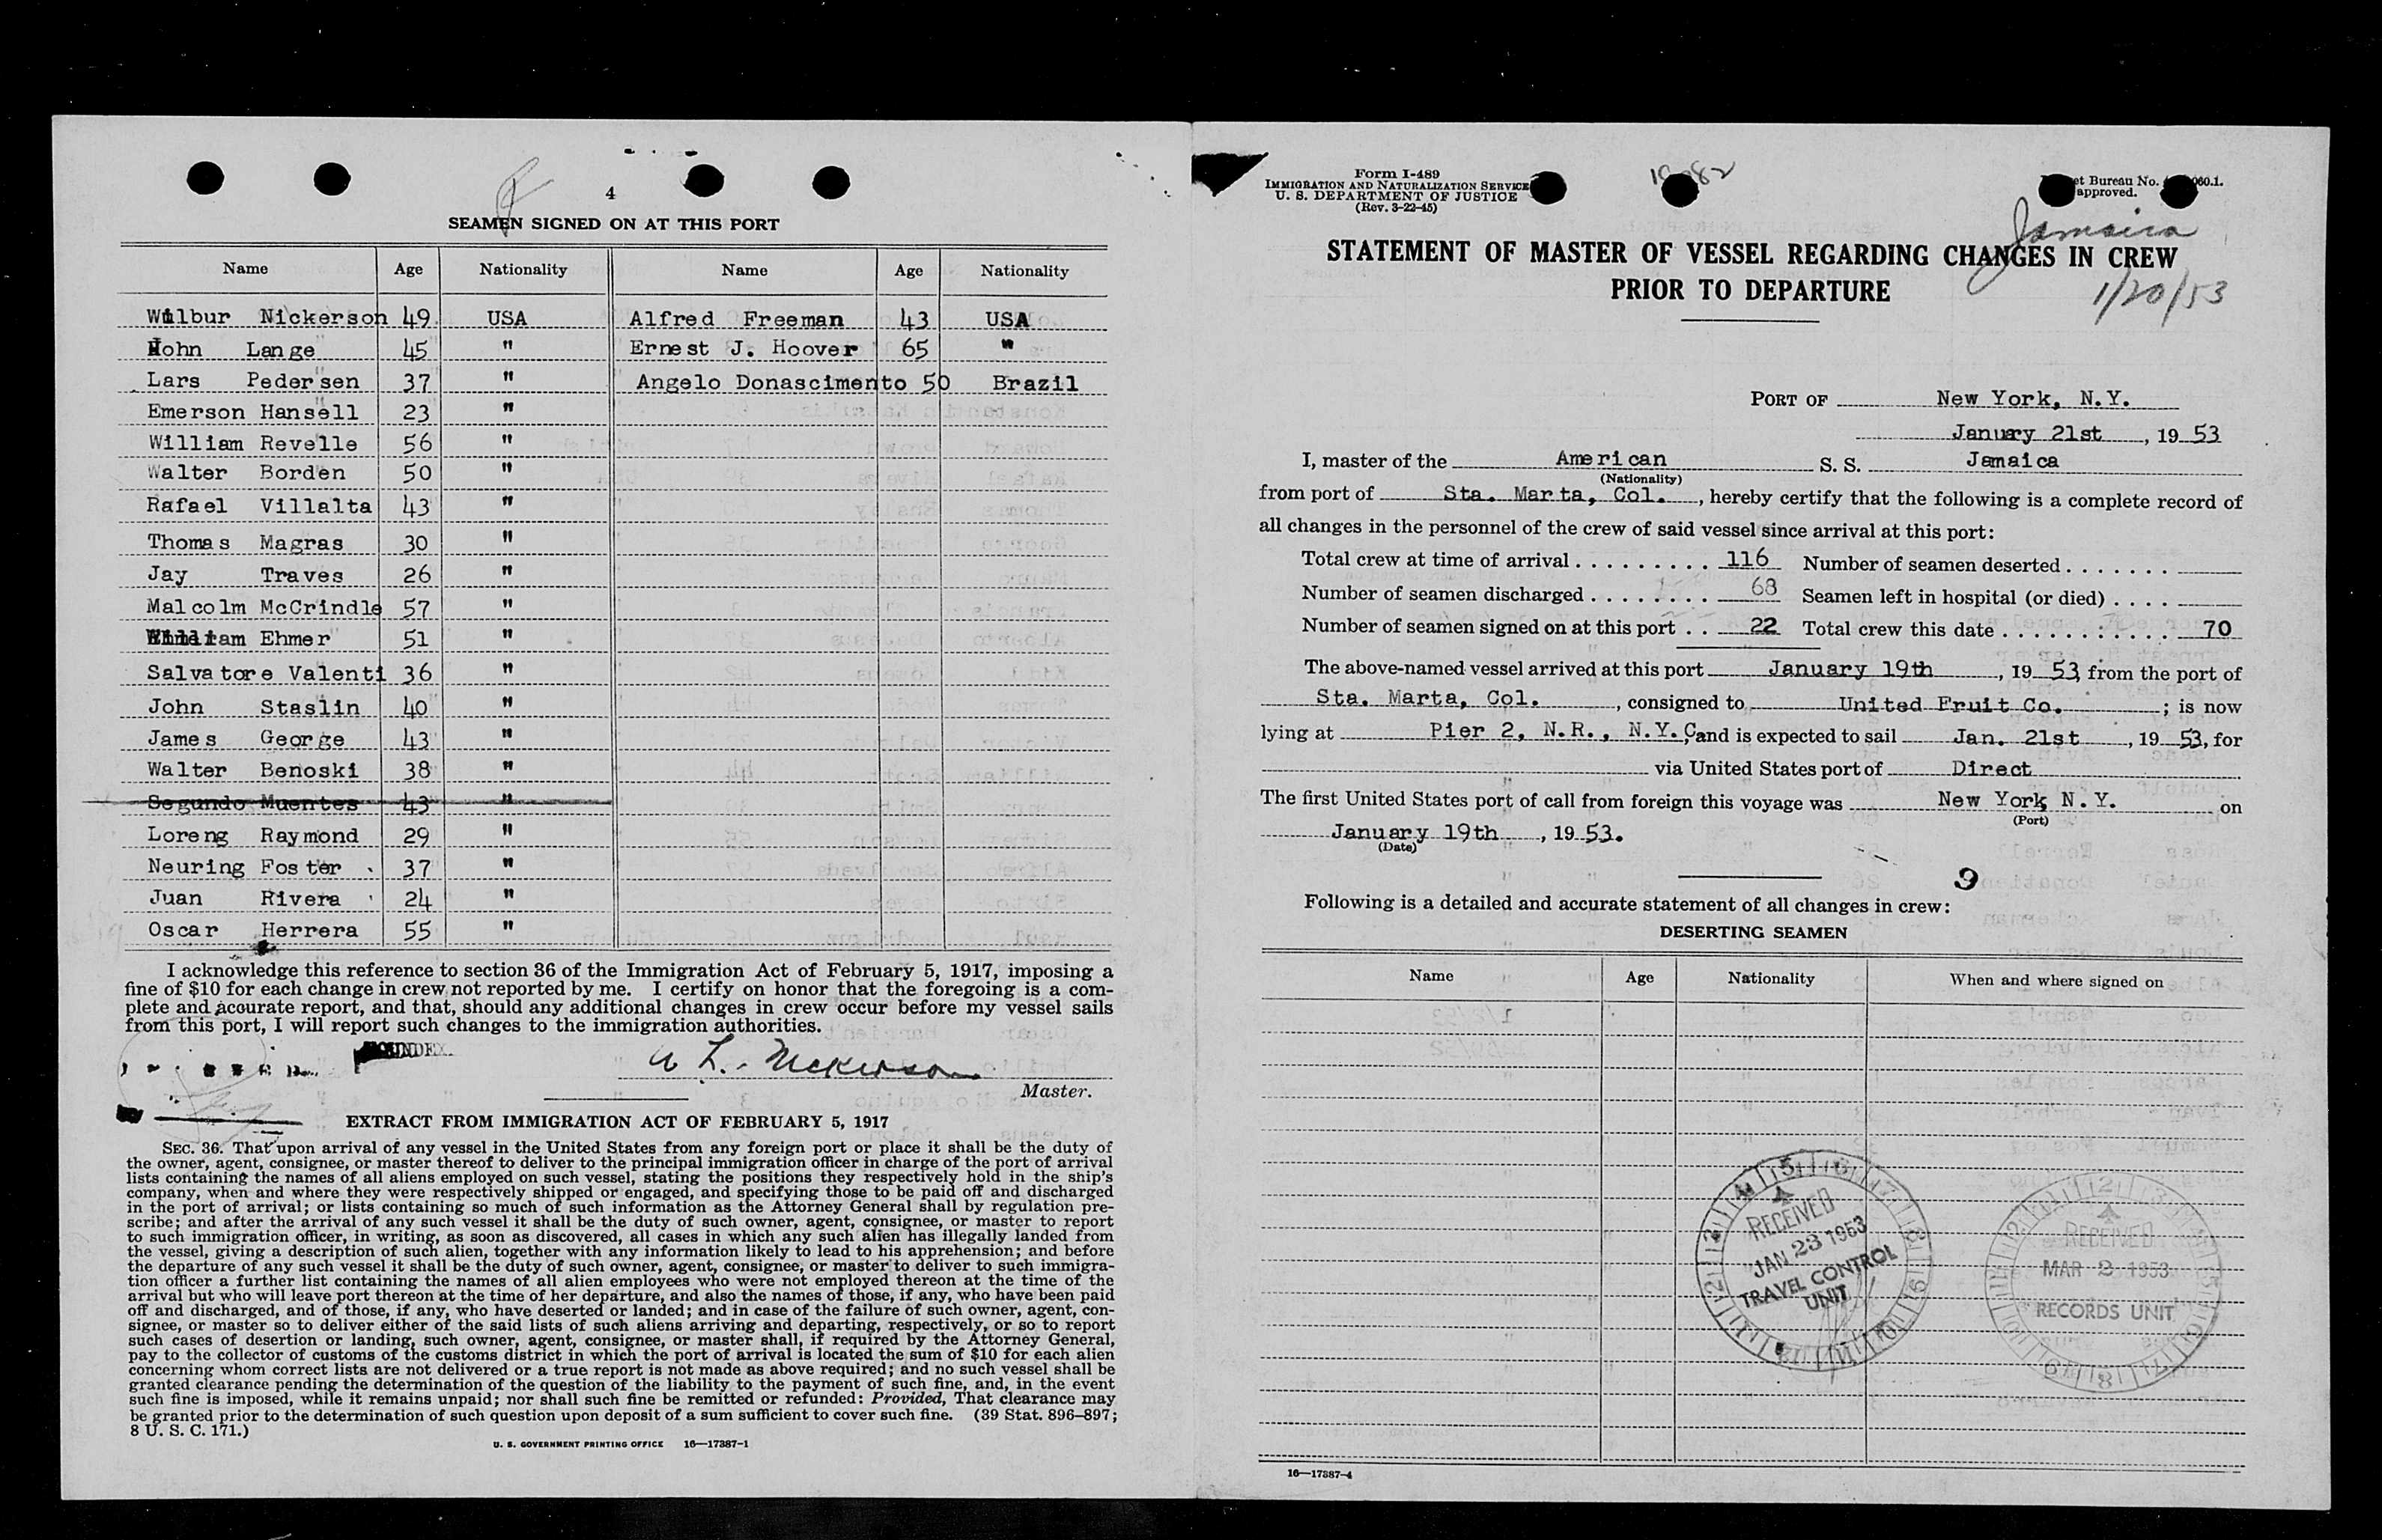 4
SEAMEN SIGNED ON AT THIS PORT
Name Age Nationality Name Age Nationality
Wilbur Nickerson 49 USA Alfred Freeman 43 USA
John Lange 45 " Ernest J. Hoover 65 "
Lars Pedersen 37 " Angelo Donascimento 50 Brazil
Emerson Hansell 23 "
William Revelle 56 "
Walter Borden 50 "
Rafael Villalta 43 "
Thomas Magras 30 "
Jay Traves 26 "
Malcolm McCrindle 57 "
William Ehmer 51 "
Salvatore Valenti 36 "
John Staslin 40 "
James George 43 "
Walter Benoski 38 "
Segundo Muentes 43 "
Loreng Raymond 29 "
Neuring Foster 37 "
Juan Rivera 24 "
Oscar Herrera 55 "
I acknowledge this reference to section 36 of the Immigration Act of February 5, 1917, imposing a
fine of $10 for each change in crew not reported by me. I certify on honor that the foregoing is a com-
plete and accurate report, and that, should any additional changes in crew occur before my vessel sails
from this port, I will report such changes to the immigration authorities.
L. Nickerson
Master.
EXTRACT FROM IMMIGRATION ACT OF FEBRUARY 5, 1917
SEC. 36. That upon arrival of any vessel in the United States from any foreign port or place it shall be the duty of
the owner, agent, consignee, or master thereof to deliver to the principal immigration officer in charge of the port of arrival
lists containing the names of all aliens employed on such vessel, stating the positions they respectively hold in the ship's
company, when and where they were respectively shipped or engaged, and specifying those to be paid off and discharged
in the port of arrival; or lists containing so much of such information as the Attorney General shall by regulation pre-
scribe; and after the arrival of any such vessel it shall be the duty of such owner, agent, consignee, or master to report
to such immigration officer, in writing, as soon as discovered, all cases in which any such alien has illegally landed from
the vessel, giving a description of such alien, together with any information likely to lead to his apprehension; and before
the departure of any such vessel it shall be the duty of such owner, agent, consignee, or master to deliver to such immigra-
tion officer a further list containing the names of all alien employees who were not employed thereon at the time of the
arrival but who will leave port thereon at the time of her departure, and also the names of those, if any, who have been paid
off and discharged, and of those, if any, who have deserted or landed; and in case of the failure of such owner, agent, con-
signee, or master so to deliver either of the said lists of such aliens arriving and departing, respectively, or so to report
such cases of desertion or landing, such owner, agent, consignee, or master shall, if required by the Attorney General,
pay to the collector of customs of the customs district in which the port of arrival is located the sum of $10 for each alien
concerning whom correct lists are not delivered or a true report is not made as above required; and no such vessel shall be
granted clearance pending the determination of the question of the liability to the payment of such fine, and, in the event
such fine is imposed, while it remains unpaid; nor shall such fine be remitted or refunded: Provided, That clearance may
be granted prior to the determination of such question upon deposit of a sum sufficient to cover such fine. (39 Stat. 896–897;
8 U. S. C. 171.)
U. S. GOVERNMENT PRINTING OFFICE 16—17387-1
Form I-489
IMMIGRATION AND NATURALIZATION SERVICE
U. S. DEPARTMENT OF JUSTICE
(Rev. 3-22-45)
et Bureau No. 060.1.
approved.
Jamaica
1/20/53
STATEMENT OF MASTER OF VESSEL REGARDING CHANGES IN CREW
PRIOR TO DEPARTURE
PORT OF New York, N.Y.
January 21st, 19 53
I, master of the American S. S. Jamaica
(Nationality)
from port of Sta. Marta, Col., hereby certify that the following is a complete record of
all changes in the personnel of the crew of said vessel since arrival at this port:
Total crew at time of arrival . . . . . . . . . 116 Number of seamen deserted . . . . . . .
Number of seamen discharged . . . . . . . . 68 Seamen left in hospital (or died) . . . .
Number of seamen signed on at this port . . 22 Total crew this date . . . . . . . . . . . 70
The above-named vessel arrived at this port January 19th, 19 53, from the port of
Sta. Marta, Col., consigned to United Fruit Co.; is now
lying at Pier 2, N.R., N.Y.C, and is expected to sail Jan. 21st, 19 53, for
via United States port of Direct
The first United States port of call from foreign this voyage was New York, N.Y. on
(Port)
January 19th, 19 53.
(Date)
9
Following is a detailed and accurate statement of all changes in crew:
DESERTING SEAMEN
Name Age Nationality When and where signed on
RECEIVED
JAN 23 1953
TRAVEL CONTROL
UNIT
RECEIVED
MAR 2 1953
RECORDS UNIT
16—17387-4